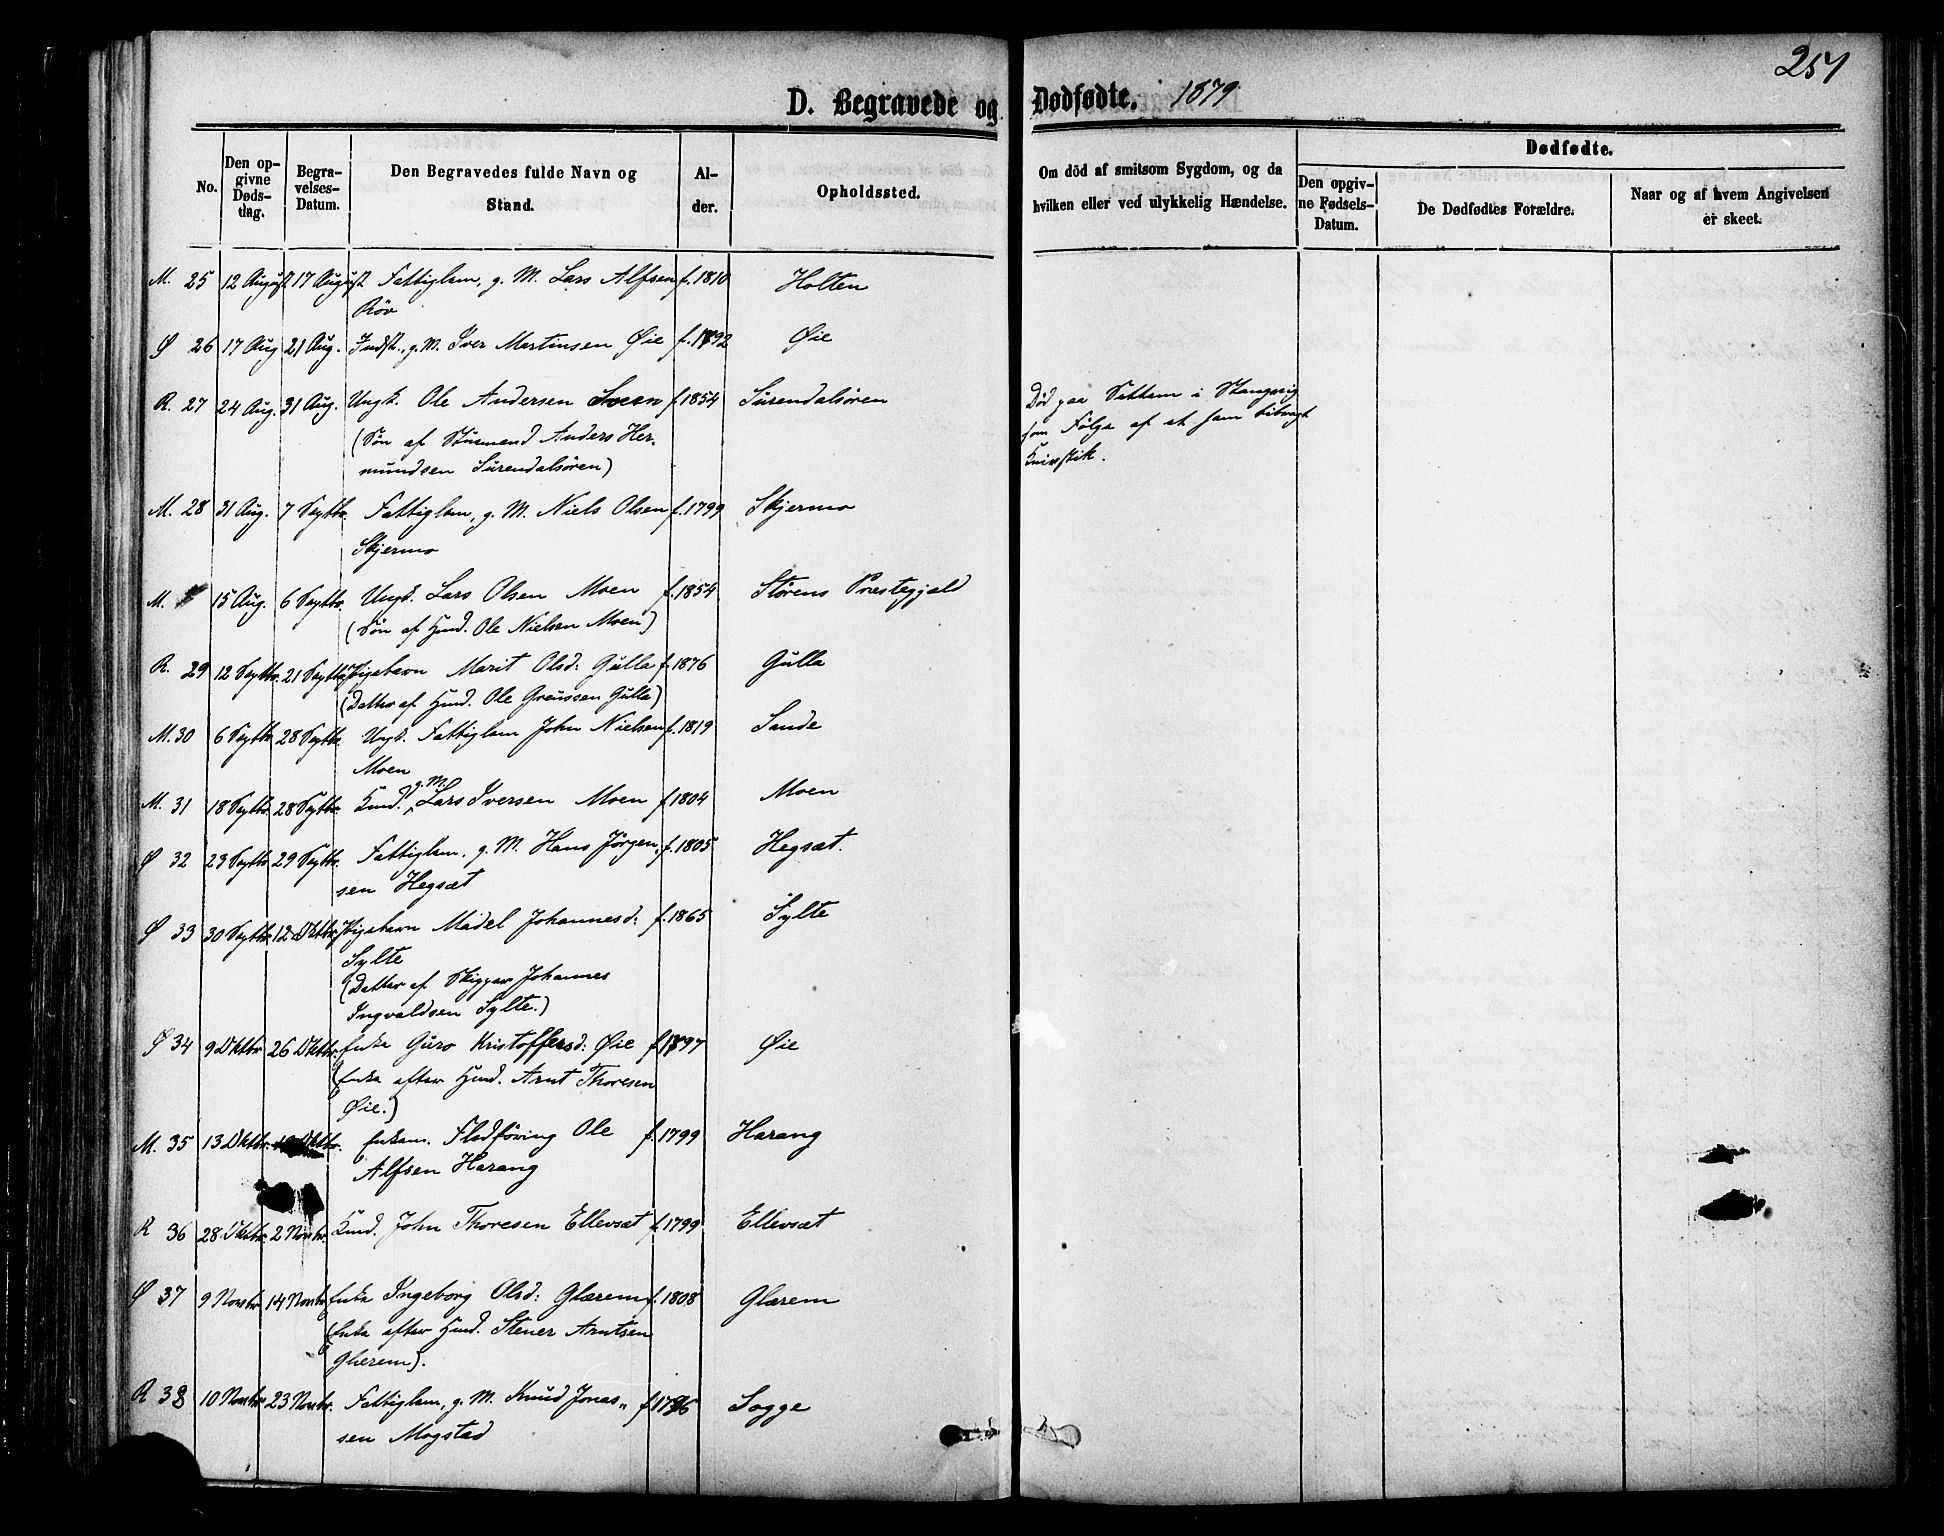 251
D. Begravede og Dødfødte. 1879
No.
Den opgivne Døds-dag.
Begravelses-Datum.
Den Begravedes fulde Navn og Stand.
Alder.
Opholdssted.
Om död af smitsom Sygdom, og da hvilken eller ved ulykkelig Hændelse.
Dødfødte.
Den opgivne Fødsels-Datum.
De Dødfødtes Forældre.
Naar og af hvem Angivelsen er skeet.
M. 25 12 August 17 August Fattiglem, g. M. Lars Alfsen f. 1810 Holten
Röv
Ø 26 17 Aug 21 Aug. Indst., g. M. Iver Martinsen Øie f. 1792 Øie
R. 27 24 Aug. 31 Aug. Ungk. Ole Andersen f. 1854 Surendalsören Død paa Sættem i Stangvig
(Søn af Husmand Anders Her- som Følge af at ham bibragt
mundsen Surendalsören) Knivstik.
M. 28 31 Aug. 7 Septbr. Fattiglem, g. M. Niels Olsen f. 1799 Skjermo
Skjermo
M. 15 Aug. 6 Septbr. Ungk. Lars Olsen Moen f. 1854 Störens Præstegjeld
(Søn af Gmd. Ole Nielsen Moen)
R. 29 12 Septbr. 21 Septbr. Pigebarn Marit Olsd: Gulla f. 1876 Gulla
(Datter af Gmd. Ole Gravssen Gulla)
M. 30 6 Septbr 28 Septbr. Ungk. Fattiglem John Nielsen f. 1819 Sande
Moen
M. 31 18 Septbr. 28 Septbr. g. M. Lars Iversen Moen f. 1804 Moen
Ø 32 23 Septbr 29 Septbr. Fattiglem. g. M. Hans Jörgen- f. 1805 Hegsæt.
sen Hegsæt
Ø 33 30 Septbr. 12 Oktbr. Pigebarn Madel Johannesd: f. 1865 Sylte
Sylte
(Datter af Skipper Johannes
Ingvaldsen Sylte.)
Ø 34 9 Oktbr 26 Oktbr. Enke Guro Kristoffersd: Øie f. 1797 Øie
(Enke efter Gmd. Arnt Thoresen
Øie.)
M. 35 13 Oktbr. Oktbr. Enkem. Flodföring Ole f. 1799 Harang
Alfsen Harang
R 36 28 Oktbr. 2 Novbr. John Thoresen Ellevsæt f. 1799 Ellevsæt
Ø 37 9 Novbr. 14 Novbr. Enke Ingeborg Olsd: Glærem f. 1808 Glærem
(Enke efter Gmd. Stener Arntsen
Glærem).
R 38 10 Novbr 23 Novbr. Fattiglem, g. M. Knud Jonas- Sogge
sen Mogstad